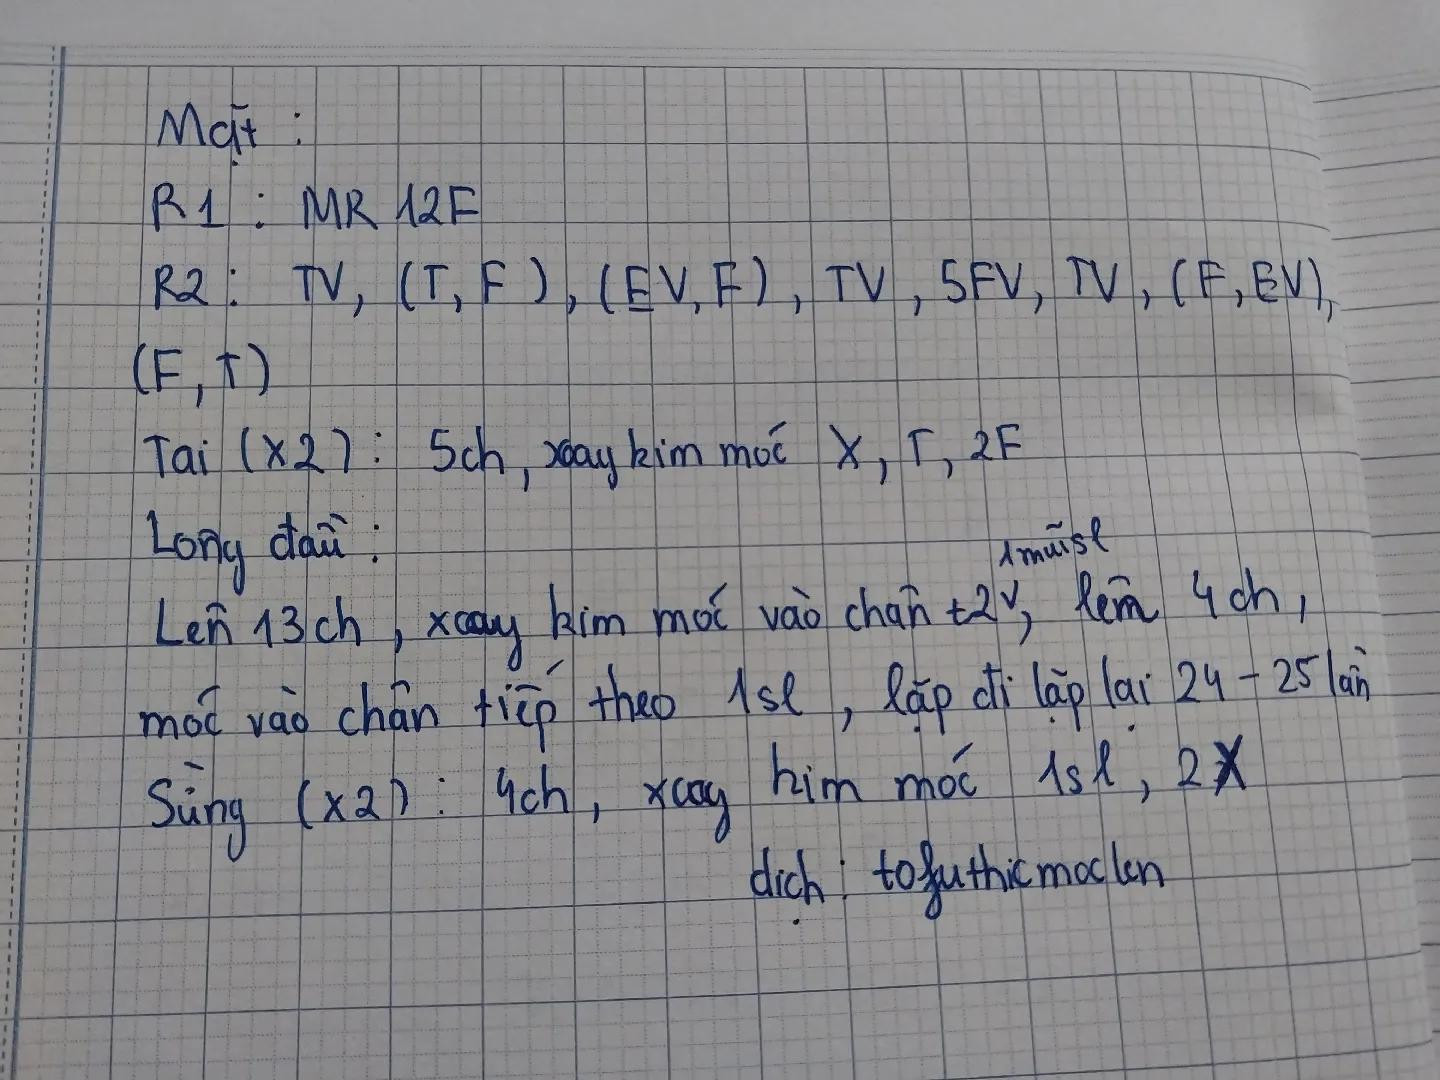 Mặt :
R1 : MR 12F
R2 : TV, (T, F), (EV, F), TV, 5FV, TV, (F, EV),
(F, T)
Tai (x2) : 5ch, xoay kim móc X, T, 2F
Lông đầu :
1 mũi sl
Lên 13ch, xoay kim móc vào chân t2v, lên 4ch,
móc vào chân tiếp theo 1sl, lặp đi lặp lại 24 - 25 lần
Sừng (x2) : 4ch, xoay kim móc 1sl, 2X
dịch : tofuthicmoclen